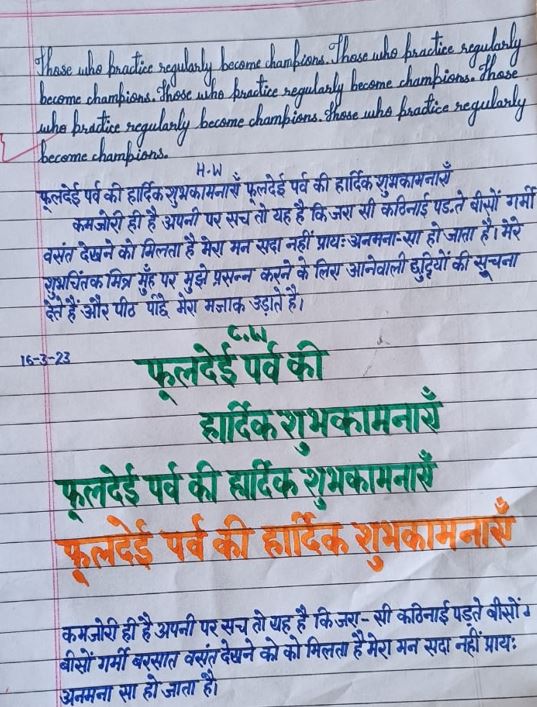 Those who practice regularly become champions. Those who practice regularly
become champions. Those who practice regularly become champions. Those
who practice regularly become champions. Those who practice regularly
become champions.
H.W
फूलदेई पर्व की हार्दिक शुभकामनाएँ फूलदेई पर्व की हार्दिक शुभकामनाएँ
कमजोरी ही है अपनी पर सच तो यह है कि जरा सी कठिनाई पड़ते बीसों गर्मी
वसंत देखने को मिलता है मेरा मन सदा नहीं प्रायः अनमना-सा हो जाता है। मेरे
शुभचिंतक मित्र मुँह पर मुझे प्रसन्न करने के लिए आनेवाली छुट्टियों की सूचना
देते हैं और पीठ पीछे मेरा मजाक उड़ाते है।
C.W
16-3-23
फूलदेई पर्व की
हार्दिक शुभकामनाएँ
फूलदेई पर्व की हार्दिक शुभकामनाएँ
फूलदेई पर्व की हार्दिक शुभकामनाएँ
कमजोरी ही है अपनी पर सच तो यह है कि जरा-सी कठिनाई पड़ते बीसों
बीसों गर्मी बरसात वसंत देखने को को मिलता है मेरा मन सदा नहीं प्रायः
अनमना सा हो जाता है।